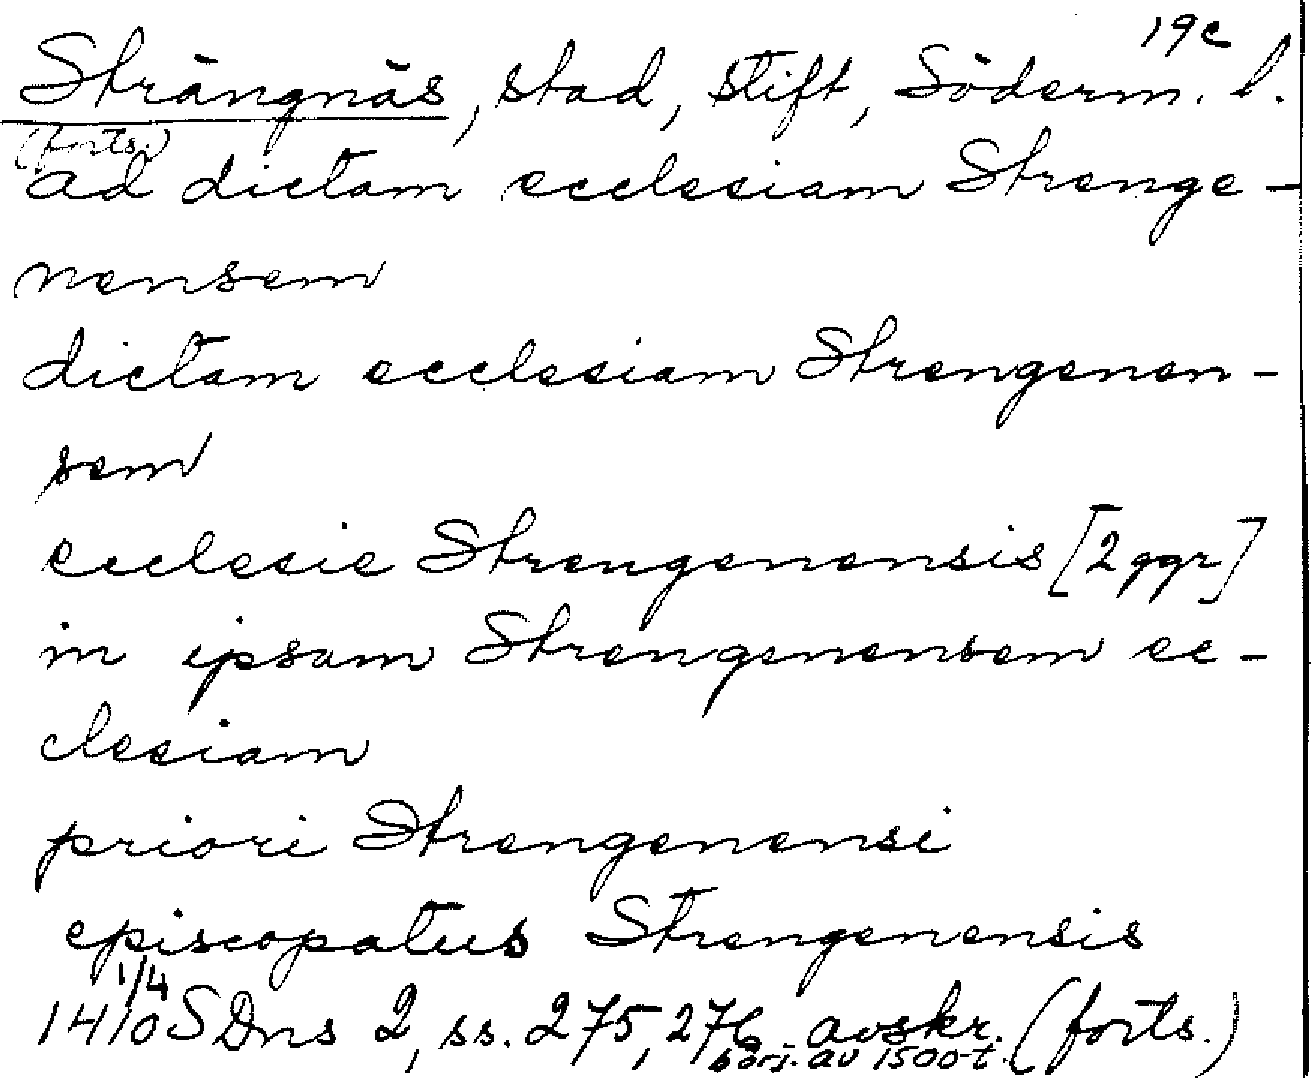 19c
Strängnäs, stad, stift, Söderm. l.
(forts.)
ad dictam ecclesiam Strenge-
nensem
dictam ecclesiam Strengenen-
sem
ecclesie Strengenensis [2 ggr]
in ipsam Strengenensem ec-
clesiam
priori Strengenensi
episcopatus Strengenensis
1/4
1410 SDns 2, ss. 275, 276 avskr. (forts.)
börj. av 1500-t.